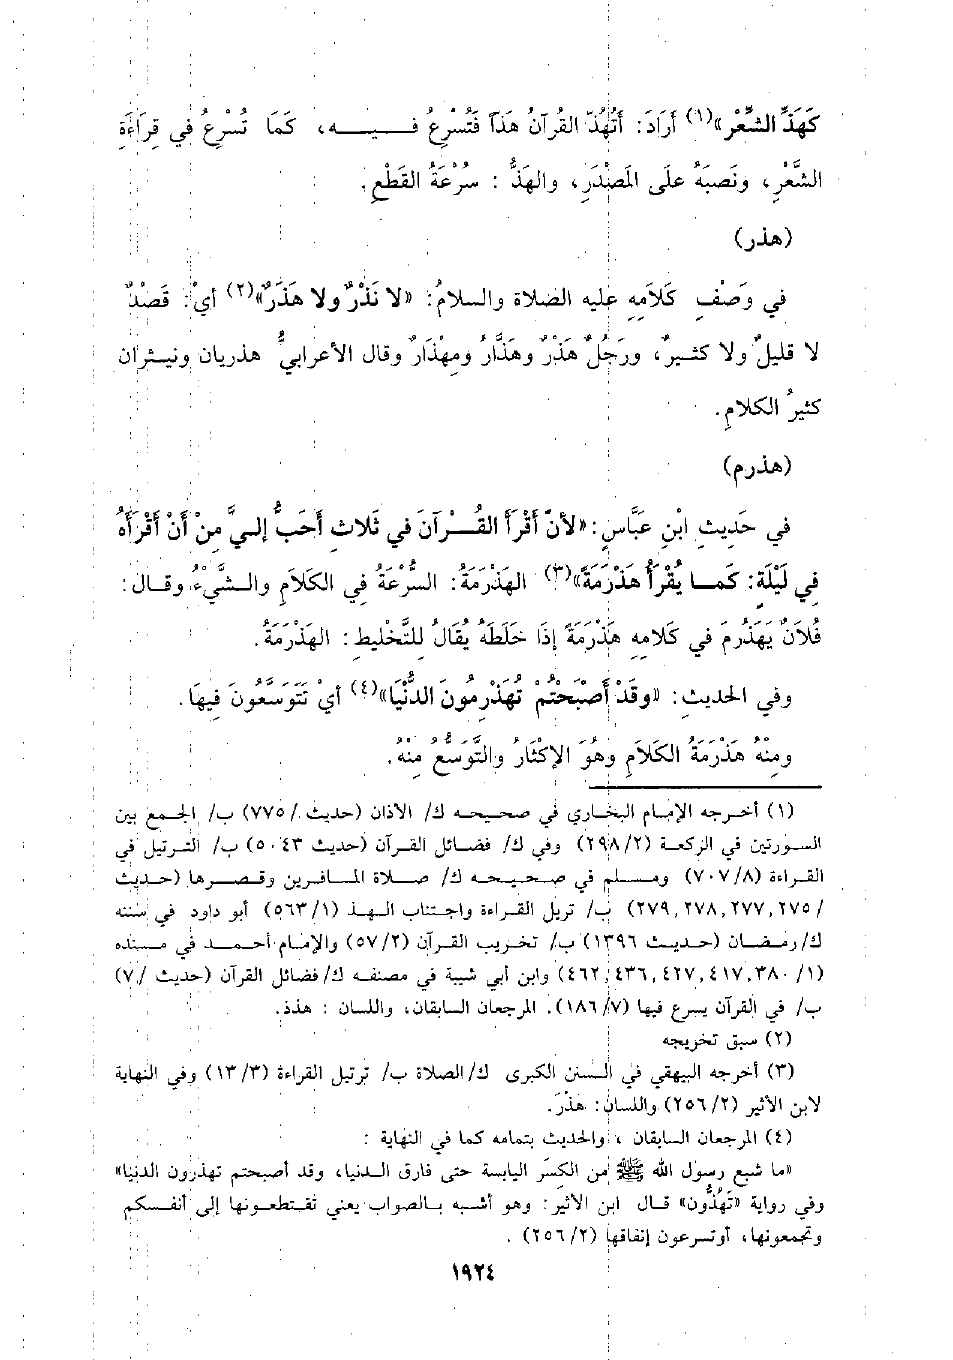 كَهَذِّ الشِّعْرِ»(١) أَرَادَ: أَتَهُذّ القُرآنَ هَذّاً فَتُسْرِعُ فــيــه، كَمَا تُسْرِعُ في قِرَاءَةِ
الشِّعْرِ، ونَصبَهُ علَى المَصْدَرِ، والهَذُّ : سرْعَةُ القَطْعِ.
(هذر)
في وَصْفِ كَلاَمِهِ عليه الصَّلاة والسلامُ: «لا نَذْرٌ ولا هَذَرٌ»(٢) أيْ: قَصْدٌ
لا قليلٌ ولا كثيـرٌ، ورَجُلٌ هَذْرٌ وهَذَّارٌ ومِهْذَارٌ وقال الأعرابيُّ هذريان ونيثران
كثيرُ الكلامِ.
(هذرم)
في حَدِيثِ ابْنِ عَبَّاسٍ: «لأنْ أَقْرَأَ القُــرْآنَ في ثَلاثٍ أَحَبُّ إليَّ مِنْ أَنْ أَقْرَأَهُ
فِي لَيْلَة: كَمَـا يُقْرَأُ هَذْرَمَةً»(٣) الهَذْرَمَةُ: السُّرْعَةُ فِي الكَلاَمِ والـشَّيْءُ وقـال:
فُلاَنٌ يَهَذْرِمُ في كَلامِهِ هَذْرَمَةً إذَا خَلَطَهُ يُقَالُ للتَّخْليط: الهَذْرَمَةُ.
وفي الحَديثِ: «وقَدْ أَصْبَحْتُمْ تُهَذْرِمُونَ الدُّنْيَا»(٤) أيْ تَتَوَسَّعُونَ فِيهَا.
ومِنْهُ هَذْرَمَةُ الكَلاَمِ وهُوَ الإكْثَارُ والتَّوَسُّعُ مِنْهُ.
(١) أخـرجه الإمـام البخـاري في صحيحـه ك/ الأذان (حديث /٧٧٥) ب/ الجـمع بين
السـورتين في الركعـة (٢٩٨/٢) وفي ك/ فضـائل القـرآن (حديث ٥٠٤٣) ب/ التـرتيل في
القـراءة (٧٠٧/٨) ومـسلم في صـحيـحه ك/ صـلاة المـافرين وقـصـرها (حـديث
/٢٧٥, ٢٧٧, ٢٧٨, ٢٧٩) ب/ تريل القـراءة واجتناب الهـذ (٥٦٣/١) أبو داود في سننه
ك/ رمـضـان (حـديـث ١٣٩٦) ب/ تخريب القـرآن (٥٧/٢) والإمـام أحـمـد في مـسنده
(١/ ٣٨٠, ٤١٧, ٤٢٧, ٤٣٦, ٤٦٢) وابن أبي شيبة في مصنفـه ك/ فضائل القرآن (حديث /٧)
ب/ في القرآن يسرع فيها (١٨٦/٧). المرجعان السابقان، واللسان : هذذ.
(٢) سبق تخريجه
(٣) أخرجه البيهقي في السنن الكبرى ك/ الصلاة ب/ ترتيل القراءة (١٣/٣) وفي النهاية
لابن الأثير (٢٥٦/٢) واللسان: هذرَ.
(٤) المرجعان السابقان ، والحديث بتمامه كما في النهاية :
«ما شبع رسول الله ﷺ من الكِسَرِ اليابسة حتى فارق الـدنيا، وقد أصبحتم تهذرون الدنيا»
وفي رواية «تَهُذُّون» قـال ابن الأثير: وهو أشـبه بـالصواب يعني تقـتطعـونها إلى أنفـسكم
وتجمعونها، أوتسرعون إنفاقها (٢٥٦/٢) .
١٩٢٤